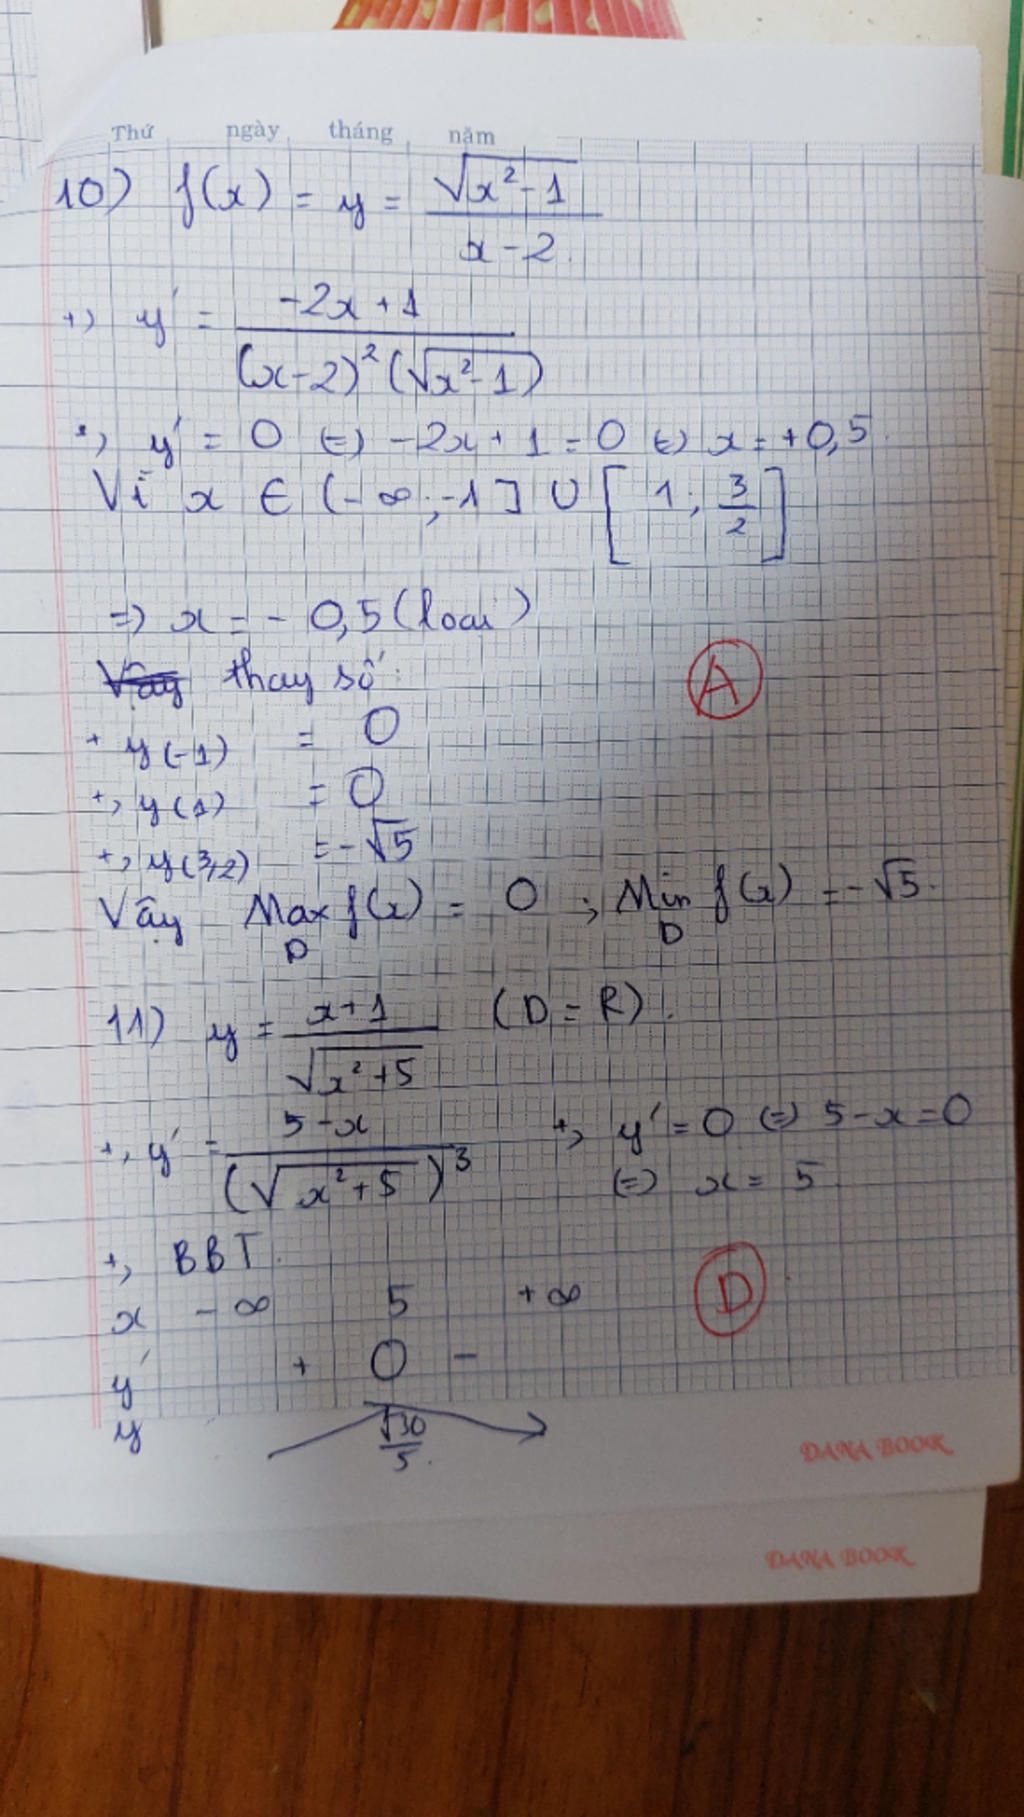 Thứ ngày tháng năm
10) f(x) = y = \frac{\sqrt{x^2-1}}{x-2}.
+) y' = \frac{-2x+1}{(x-2)^2(\sqrt{x^2-1})}
+, y' = 0 (=) -2x+1=0 (=) x=+0,5.
Vì x ∈ (-∞;-1] ∪ [1; \frac{3}{2}]
=) x = - 0,5 (loại)
Vậy thay số:
+ y(-1) = 0
+, y(1) = 0
+, y(3/2) = -√5
A
Vậy Max f(x) = 0 ; Min f(x) = -√5.
D D
11) y = \frac{x+1}{\sqrt{x^2+5}} (D = R).
+, y' = \frac{5-x}{(\sqrt{x^2+5})^3} +, y' = 0 (=) 5-x=0
(=) x = 5
+, BBT.
x -∞ 5 +∞
D
y' + 0 -
y \frac{\sqrt{30}}{5}.
DANA BOOK
DANA BOOK